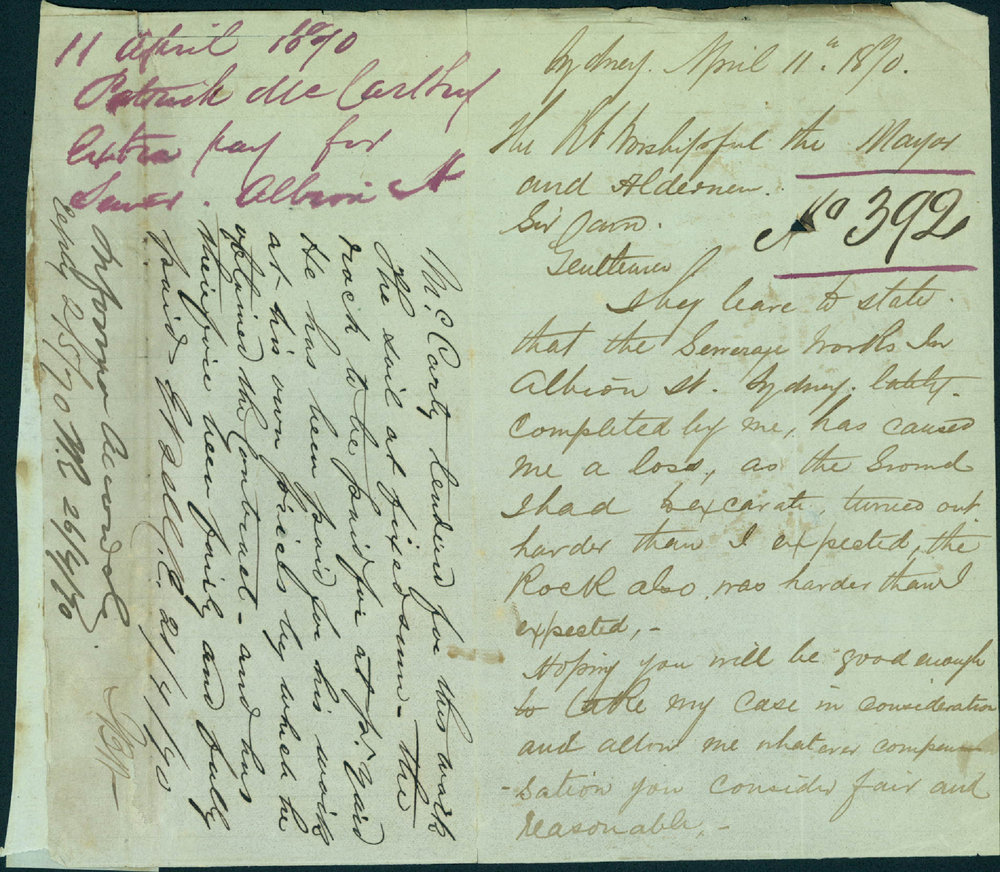 11 April 1870
Patrick McCarthy
Extra pay for
Sewer. Albion St
McCarty tendered for this work
the soil at fixed sum - the
rock to be paid for at pr. yard
He has been paid for his work
at his own prices by which he
obtained the Contract - and has
therefore been fairly and fully
paid 21/4/70
Inform accordly
Reply 25/70 26/4/70
Sydney. April 11th. 1870.
The Rt Worshipful the Mayor
and Aldermen.
No 392
Sir and
Gentlemen
I beg leave to state.
that the Sewerage Works In
Albion St. Sydney. lately.
Completed by me, has caused
me a loss, as the Ground
I had to excavate, turned out
harder than I expected, the
Rock also was harder than I
expected, -
Hoping you will be good enough
to take my case in consideration
and allow me whatever compen-
-sation you consider fair and
reasonable, -